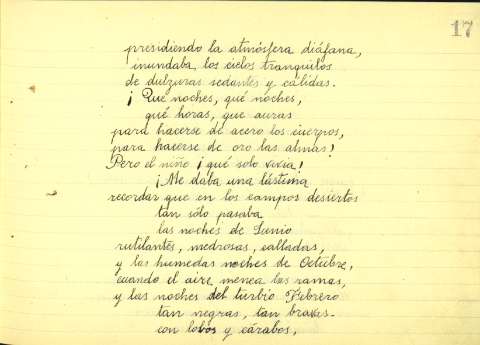 17
presidiendo la atmósfera diáfana,
inundaba los cielos tranquilos
de dulzuras sedantes y cálidas.
¡Qué noches, qué noches,
qué horas, que auras
para hacerse de acero los cuerpos,
para hacerse de oro las almas!
Pero el niño ¡qué solo vivia!
¡Me daba una lástima
recordar que en los campos desiertos
tan sólo pasaba
las noches de Junio
rutilantes, medrosas, calladas,
y las humedas noches de Octubre,
cuando el aire menea las ramas,
y las noches del turbio Febrero
tan negras, tan bravas
con lobos y cárabos,